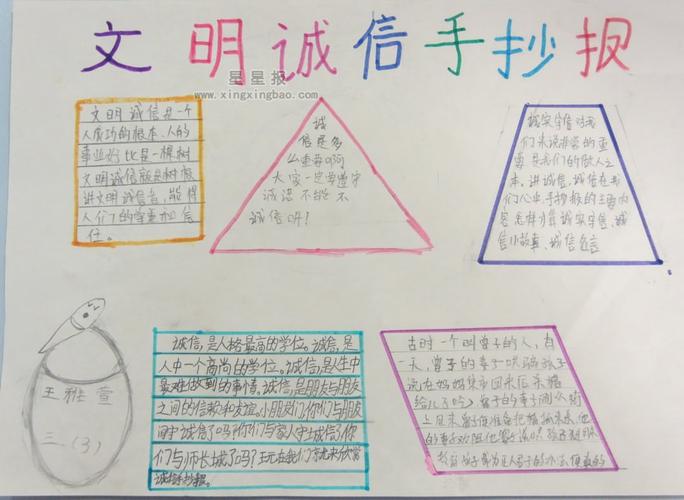 文明诚信手抄报
星星报
www.xingxingbao.com
文明诚信是一个
人成功的根本,人的
事业好比是一棵树
文明诚信就是树根
讲文明诚信者,能得
人们的尊重和信
任。
诚
信是多
么重要啊
大家一定要遵守
诚诺不能不
诚信呀!
诚实守信对我
们来说非常的重
要,是我们的做人之
本。讲诚信,诚信在我
们心中,手抄报的主要内
容怎样才算诚实守信、诚
信小故事、诚信名言
王雅萱
三(3)
诚信,是人格最高的学位。诚信,是
人中一个高尚的学位。诚信是人生中
最难做到的事情。诚信,是朋友与朋友
之间的信赖和友谊。小朋友们,你们与朋友
间守诚信了吗?你们与家人守诚信了,你
们与师长诚了吗?
古时一个叫曾子的人,有
一天,曾子的妻子哄骗孩子
说在妈妈集市回来后来猪
给儿子吃